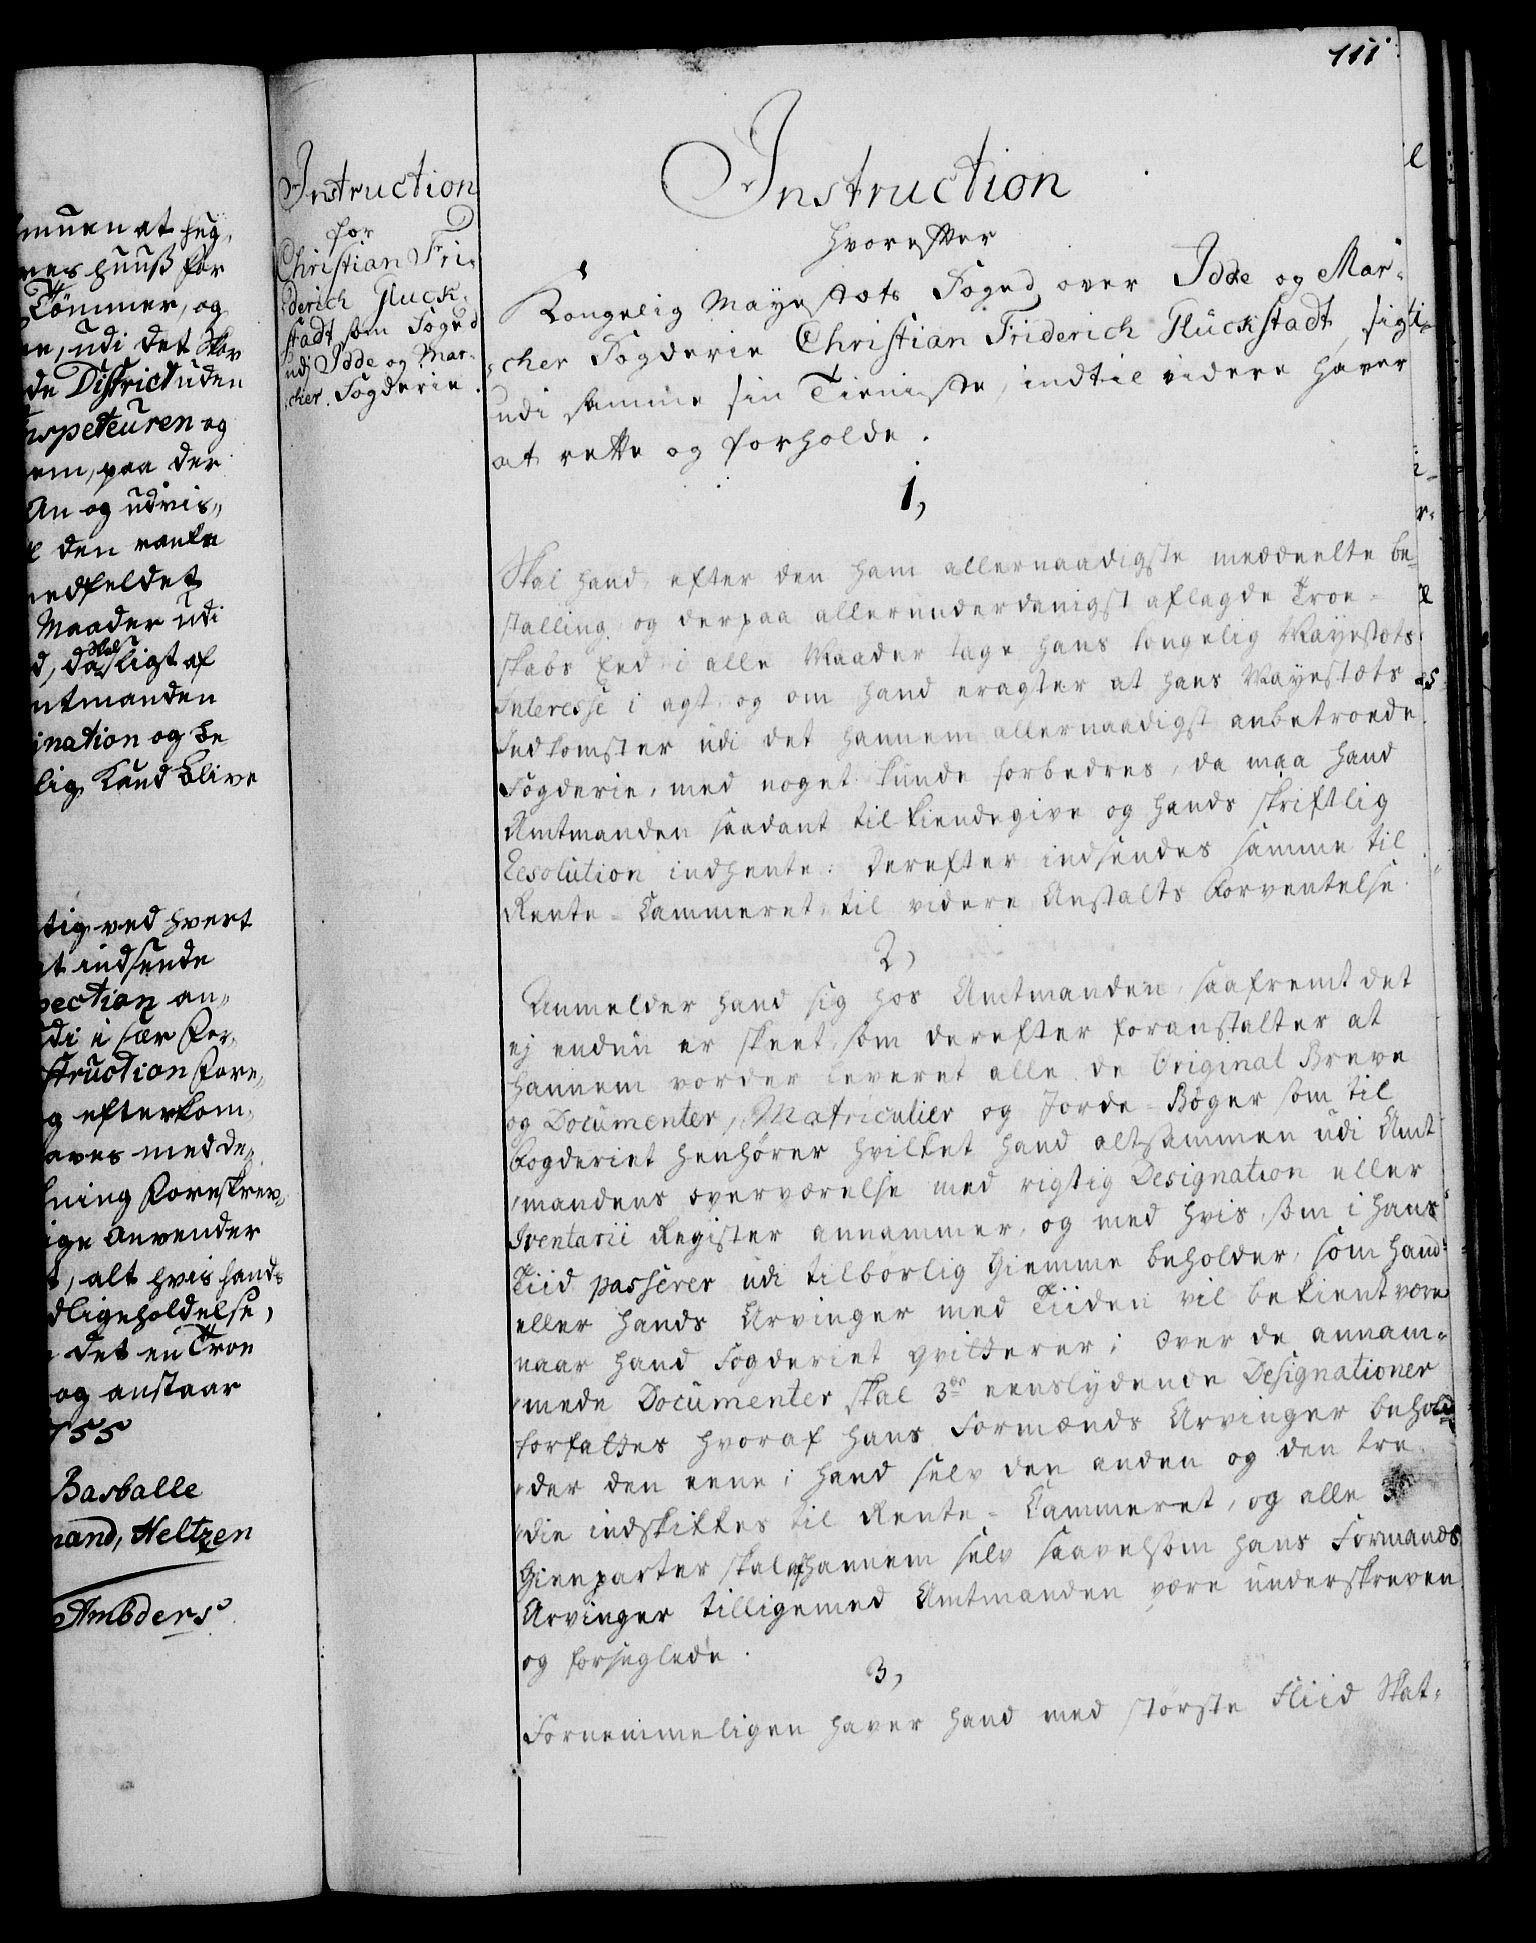 muen at hug,
nes huuß for
Tömmer, og
ne, udi det Skov
de District uden
nspecteuren og
em, paa der
An og udvis„
den ranke
nedfeldet
Maader udi
d, da skal ligt af
mtmanden
ination og be
lig Kand blive
tig ved hvert
at indsende
pection an„
di i sær for„
struction fore„
g efterkom„
aves medde„
lning foreskrev„
ige Anvender
t, alt hvis hands
dligeholdelse,
det en Troe
og anstaar
755
Basballe
mand, Heltzen
Ambders
Instruction
for
Christian Fri„
derich Gluck„
stadt som Foged
udj Idde og Mar„
cker Fogderie.
111
Instruction
hvorefter
Kongelig Mayestæts Foged over Idde og Mar„
cker Fogderie Christian Friderich Glückstadt, sig
udi samme sin Tieniste, indtil videre haver
at rette og forholde.
1,
Skal hand, efter den ham allernaadigste meddeelte be„
stalling, og derpaa allerunderdanigst aflagde Troe„
skabs Eed i alle Maader tage hans kongelig Mayestæts
Interesse i agt, og om hand eragter at hans Mayestæts
Indkomster udi det hannem allernaadigst anbetroede
Fogderie, med noget kunde forbedres, da maa hand
Amtmanden saadant tilkiendegive og hands skriftlig
Resolution indhente: derefter indsendes samme til
Rente-Cammeret, til videre Anstalts Forventelse.
2,
Anmelder hand sig hos Amtmanden, saafremt det
ej endnu er skeet, som derefter foranstalter at
hannem vorder leveret alle de Original Breve
og Documenter, Matriculier og Jorde-Bøger som til
Fogderiet henhører hvilket hand altsammen udi Amt
„mandens overværelse med rigtig Designation eller
Iventarii Register annammer, og med hvis, som i hans
Tiid passerer udi tilborlig Giemme beholder, som hand
eller hands Arvinger med Tiiden vil bekient være
naar hand Fogderiet qvitterer; Over de annam„
„mede Documenter skal 3de eenslydende Designationer
forfattes hvoraf hans Formands Arvinger behol
„der den eene; hand selv den anden og den tre
„die indskikkes til Rente-Cammeret, og alle
Gienparter skal af hannem selv saavelsom hans Formands
Arvinger tilligemed Amtmanden være underskreven
og forseglede.
3,
Fornemmeligen haver hand med störste Fliid Skat„